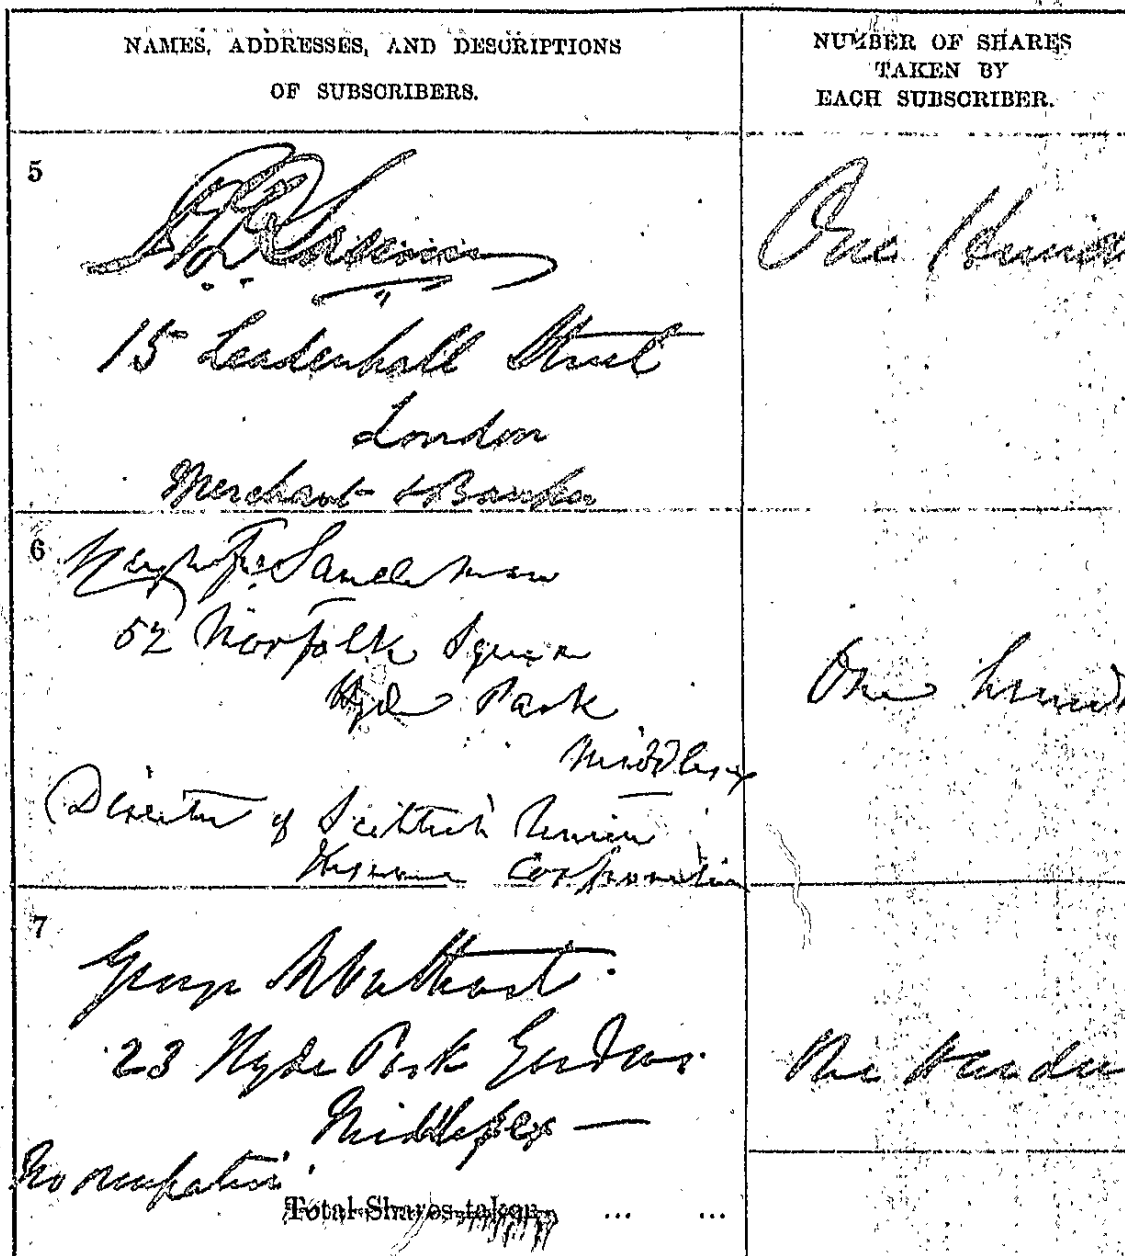 NAMES, ADDRESSES, AND DESCRIPTIONS
OF SUBSCRIBERS.
NUMBER OF SHARES
TAKEN BY
EACH SUBSCRIBER.
5
One Hund
15 Leadenhall Street
London
Merchant & Banker
6
Sandeman
52 Norfolk Square
Hyde Park
One hund
Middlesex
Director of Scottish Union
Insurance Corporation
7
George
23 Hyde Park Gardens
One Hundre
Middlesex —
No occupation
Total Shares taken ... ...